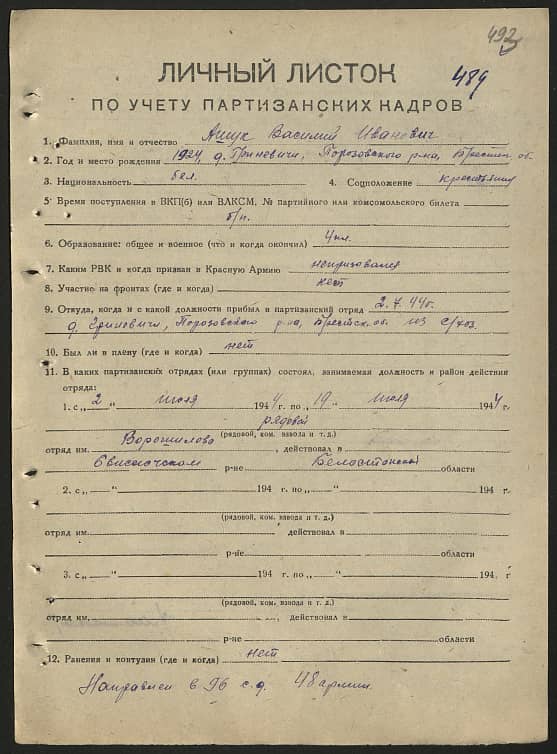 492
489
ЛИЧНЫЙ ЛИСТОК
ПО УЧЕТУ ПАРТИЗАНСКИХ КАДРОВ
1. Фамилия, имя и отчество Ашук Василий Иванович
2. Год и место рождения 1924, д. Гриневичи, Порозовского р-на, Брестск. об.
3. Национальность бел. 4. Соцположение крестьянин
5. Время поступления в ВКП(б) или ВЛКСМ, № партийного или комсомольского билета
б/п.
6. Образование: общее и военное (что и когда окончил) 4 кл.
7. Каким РВК и когда призван в Красную Армию непризовался
8. Участие на фронтах (где и когда) нет
9. Откуда, когда и с какой должности прибыл в партизанский отряд 2.7.44г.
д. Гриневичи, Порозовского р-на, Брестск. об. из с/хоз.
10. Был ли в плену (где и когда) нет
11. В каких партизанских отрядах (или группах) состоял, занимаемая должность и район действия
отряда:
1. с „ 2 “ июля 194 4 г. по „ 19 “ июля 194 4 г.
рядовой
(рядовой, ком. взвода и т. д.)
отряд им. Ворошилова , действовал в
Свислочском р-не Белостокской области
2. с „ “ 194 г. по „ “ 194 г.
(рядовой, ком. взвода и т. д.)
отряд им. действовал в
р-не области
3. с „ “ 194 г. по „ “ 194 г
(рядовой, ком. взвода и т. д.)
отряд им. , действовал в
р-не области
12. Ранения и контузии (где и когда) нет
Направлен в 96 с.д. 48 армии.